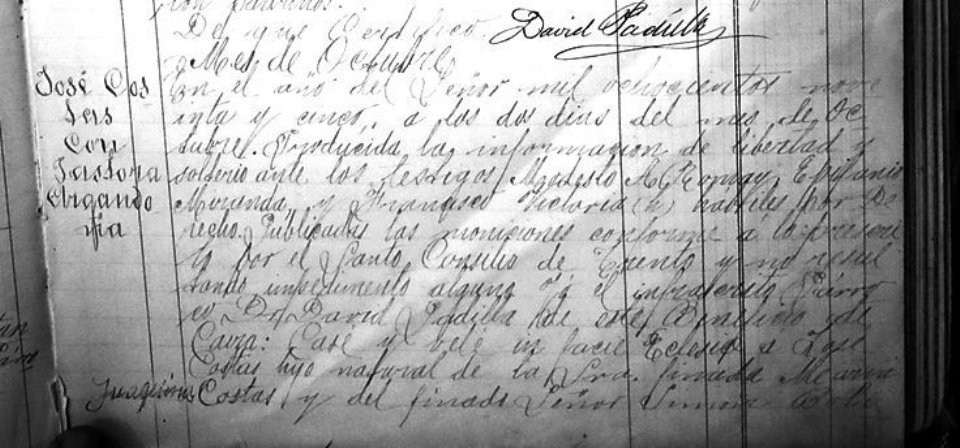 con padrinos.
De que Certifico. David Padilla
Mes de Octubre
José Cos
tas
Con
Pastora
Argando
ña
En el año del Señor mil ochocientos nove
inta y cinco, a los dos dias del mes de Oc
tubre. Producida la informacion de libertad y
solterio ante los testigos Modesto Epifanio
Miranda, y Francisco Victoria (h) habiles por De
recho. Publicadas las moniciones conforme a lo prescri
to por el Santo Consilio de Trento y no resul
tando impedimento alguno Yo el infrascrito Párro
co Dr. David Padilla de este Beneficio de
Caiza: Casé y velé in facie Eclesia a José
Costas hijo natural de la Sra. finada Maria
Juaquina Costas y del finado Señor Simon